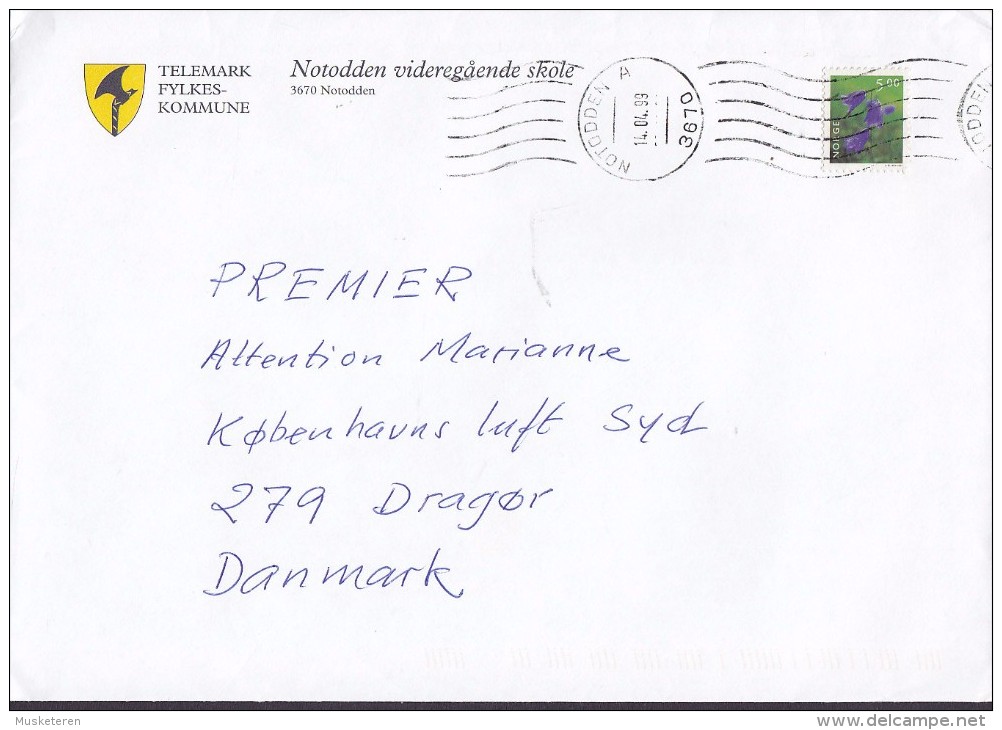 TELEMARK
FYLKES-
KOMMUNE
Notodden videregående skole
3670 Notodden
NOTODDEN A
14.04.99
3670
5.00
NORGE
TODDEN
PREMIER
Attention Marianne
Københavns luft Syd
279 Dragør
Danmark
Musketeren
delcampe.net